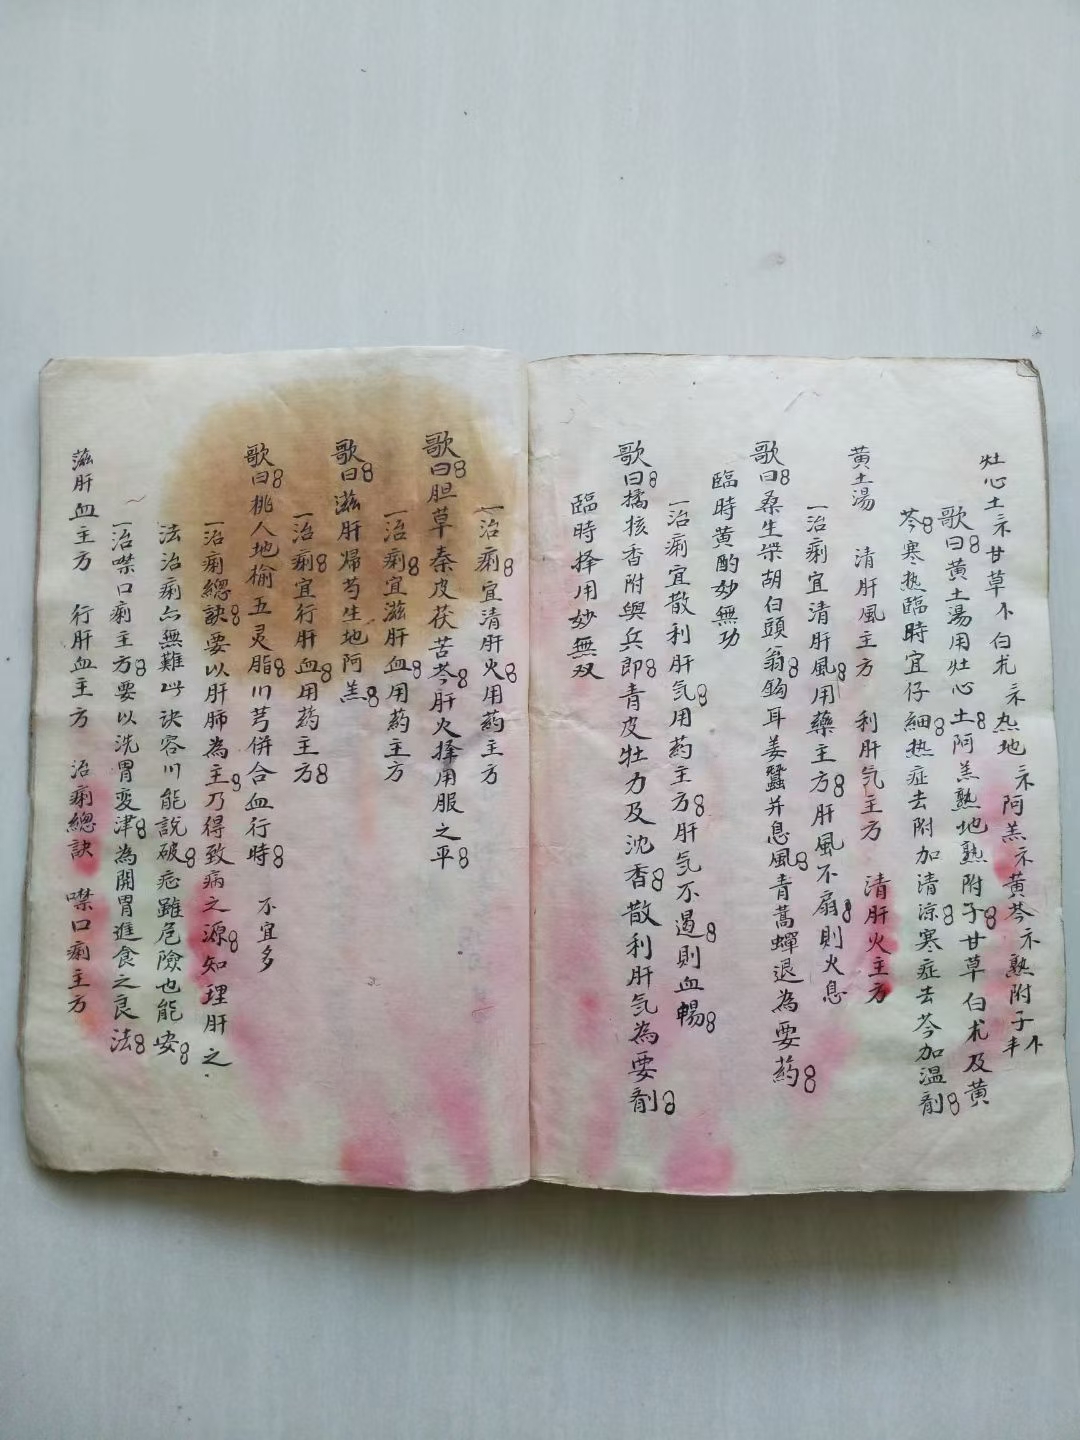 灶心土 甘草 白术 熟地 阿羔 黄芩 熟附子
歌曰黄土湯用灶心土阿羔熟地熟附子甘草白术及黄
芩寒热臨時宜仔細热症去附加清凉寒症去芩加温剤
黄土湯 清肝風主方 利肝気主方 清肝火主方
一治痢宜清肝風用藥主方肝風不扇則火息
歌曰桑生柴胡白頭翁鈎耳姜蠶并息風青蒿蟬退為要药
臨時黄酌妙無功
一治痢宜散利肝気用药主方肝気不遏則血暢
歌曰橘核香附與兵即青皮牡力及沈香散利肝気為要剤
臨時择用妙無双
一治痢宜清肝火用药主方
歌曰胆草秦皮茯苦芩肝火擇用服之平
一治痢宜滋肝血用药主方
歌曰滋肝归芍生地阿羔
一治痢宜行肝血用药主方
歌曰桃人地榆五灵脂川芎併合血行時 不宜多
一治痢總訣要以肝肺為主乃得致病之源知理肝之
法治痢亦無難此決容川能說破症雖危險也能安
一治噤口痢主方要以洗胃变津為開胃進食之良法
滋肝血主方 行肝血主方 治痢總訣 噤口痢主方